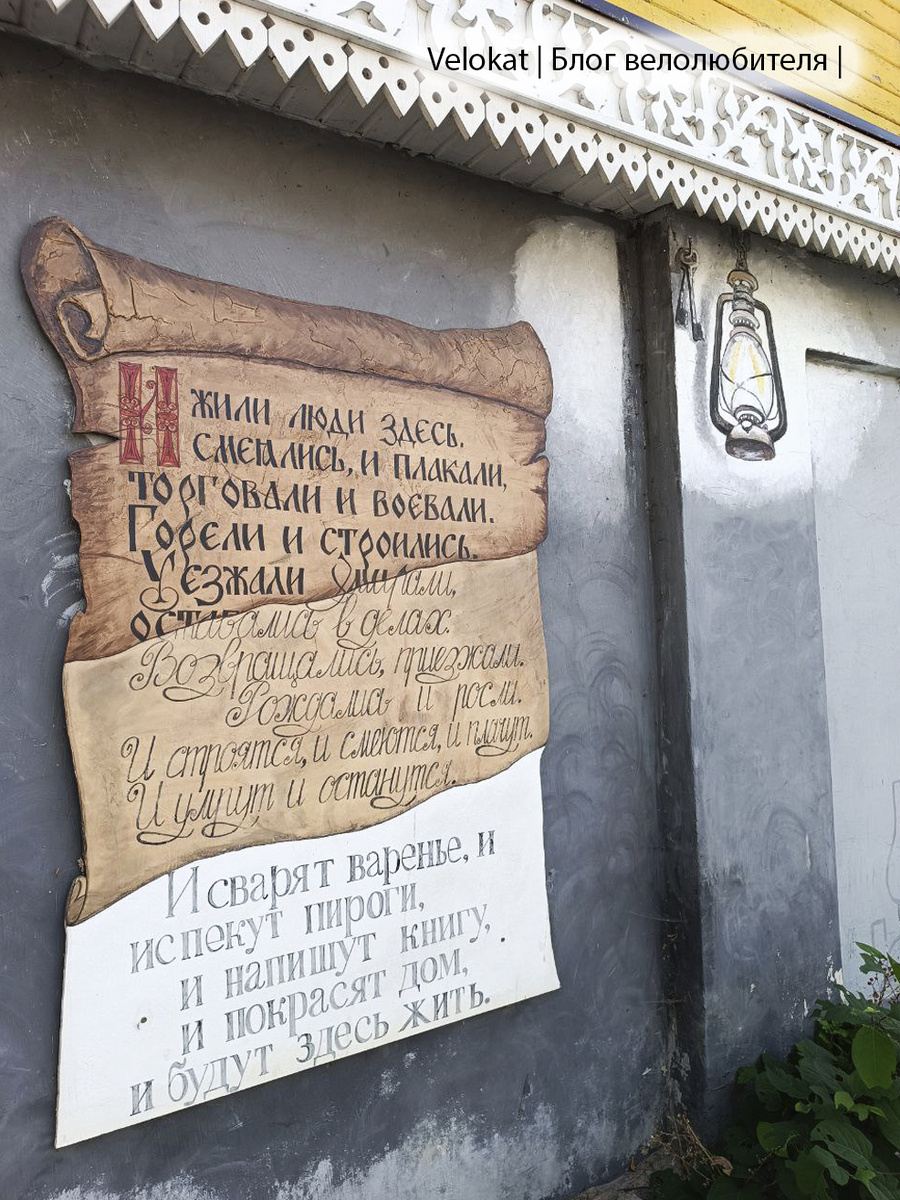 Velokat | Блог велолюбителя |
И жили люди здесь.
смеялись, и плакали,
торговали и воевали.
Горели и строились.
Уезжали Умирали,
оставались в делах.
Возвращались, приезжали.
Рождались и росли.
И строятся, и смеются, и плачут.
И улучт и останутся.
И сварят варенье, и
испекут пироги,
и напишут книгу,
и покрасят дом,
и будут здесь жить.